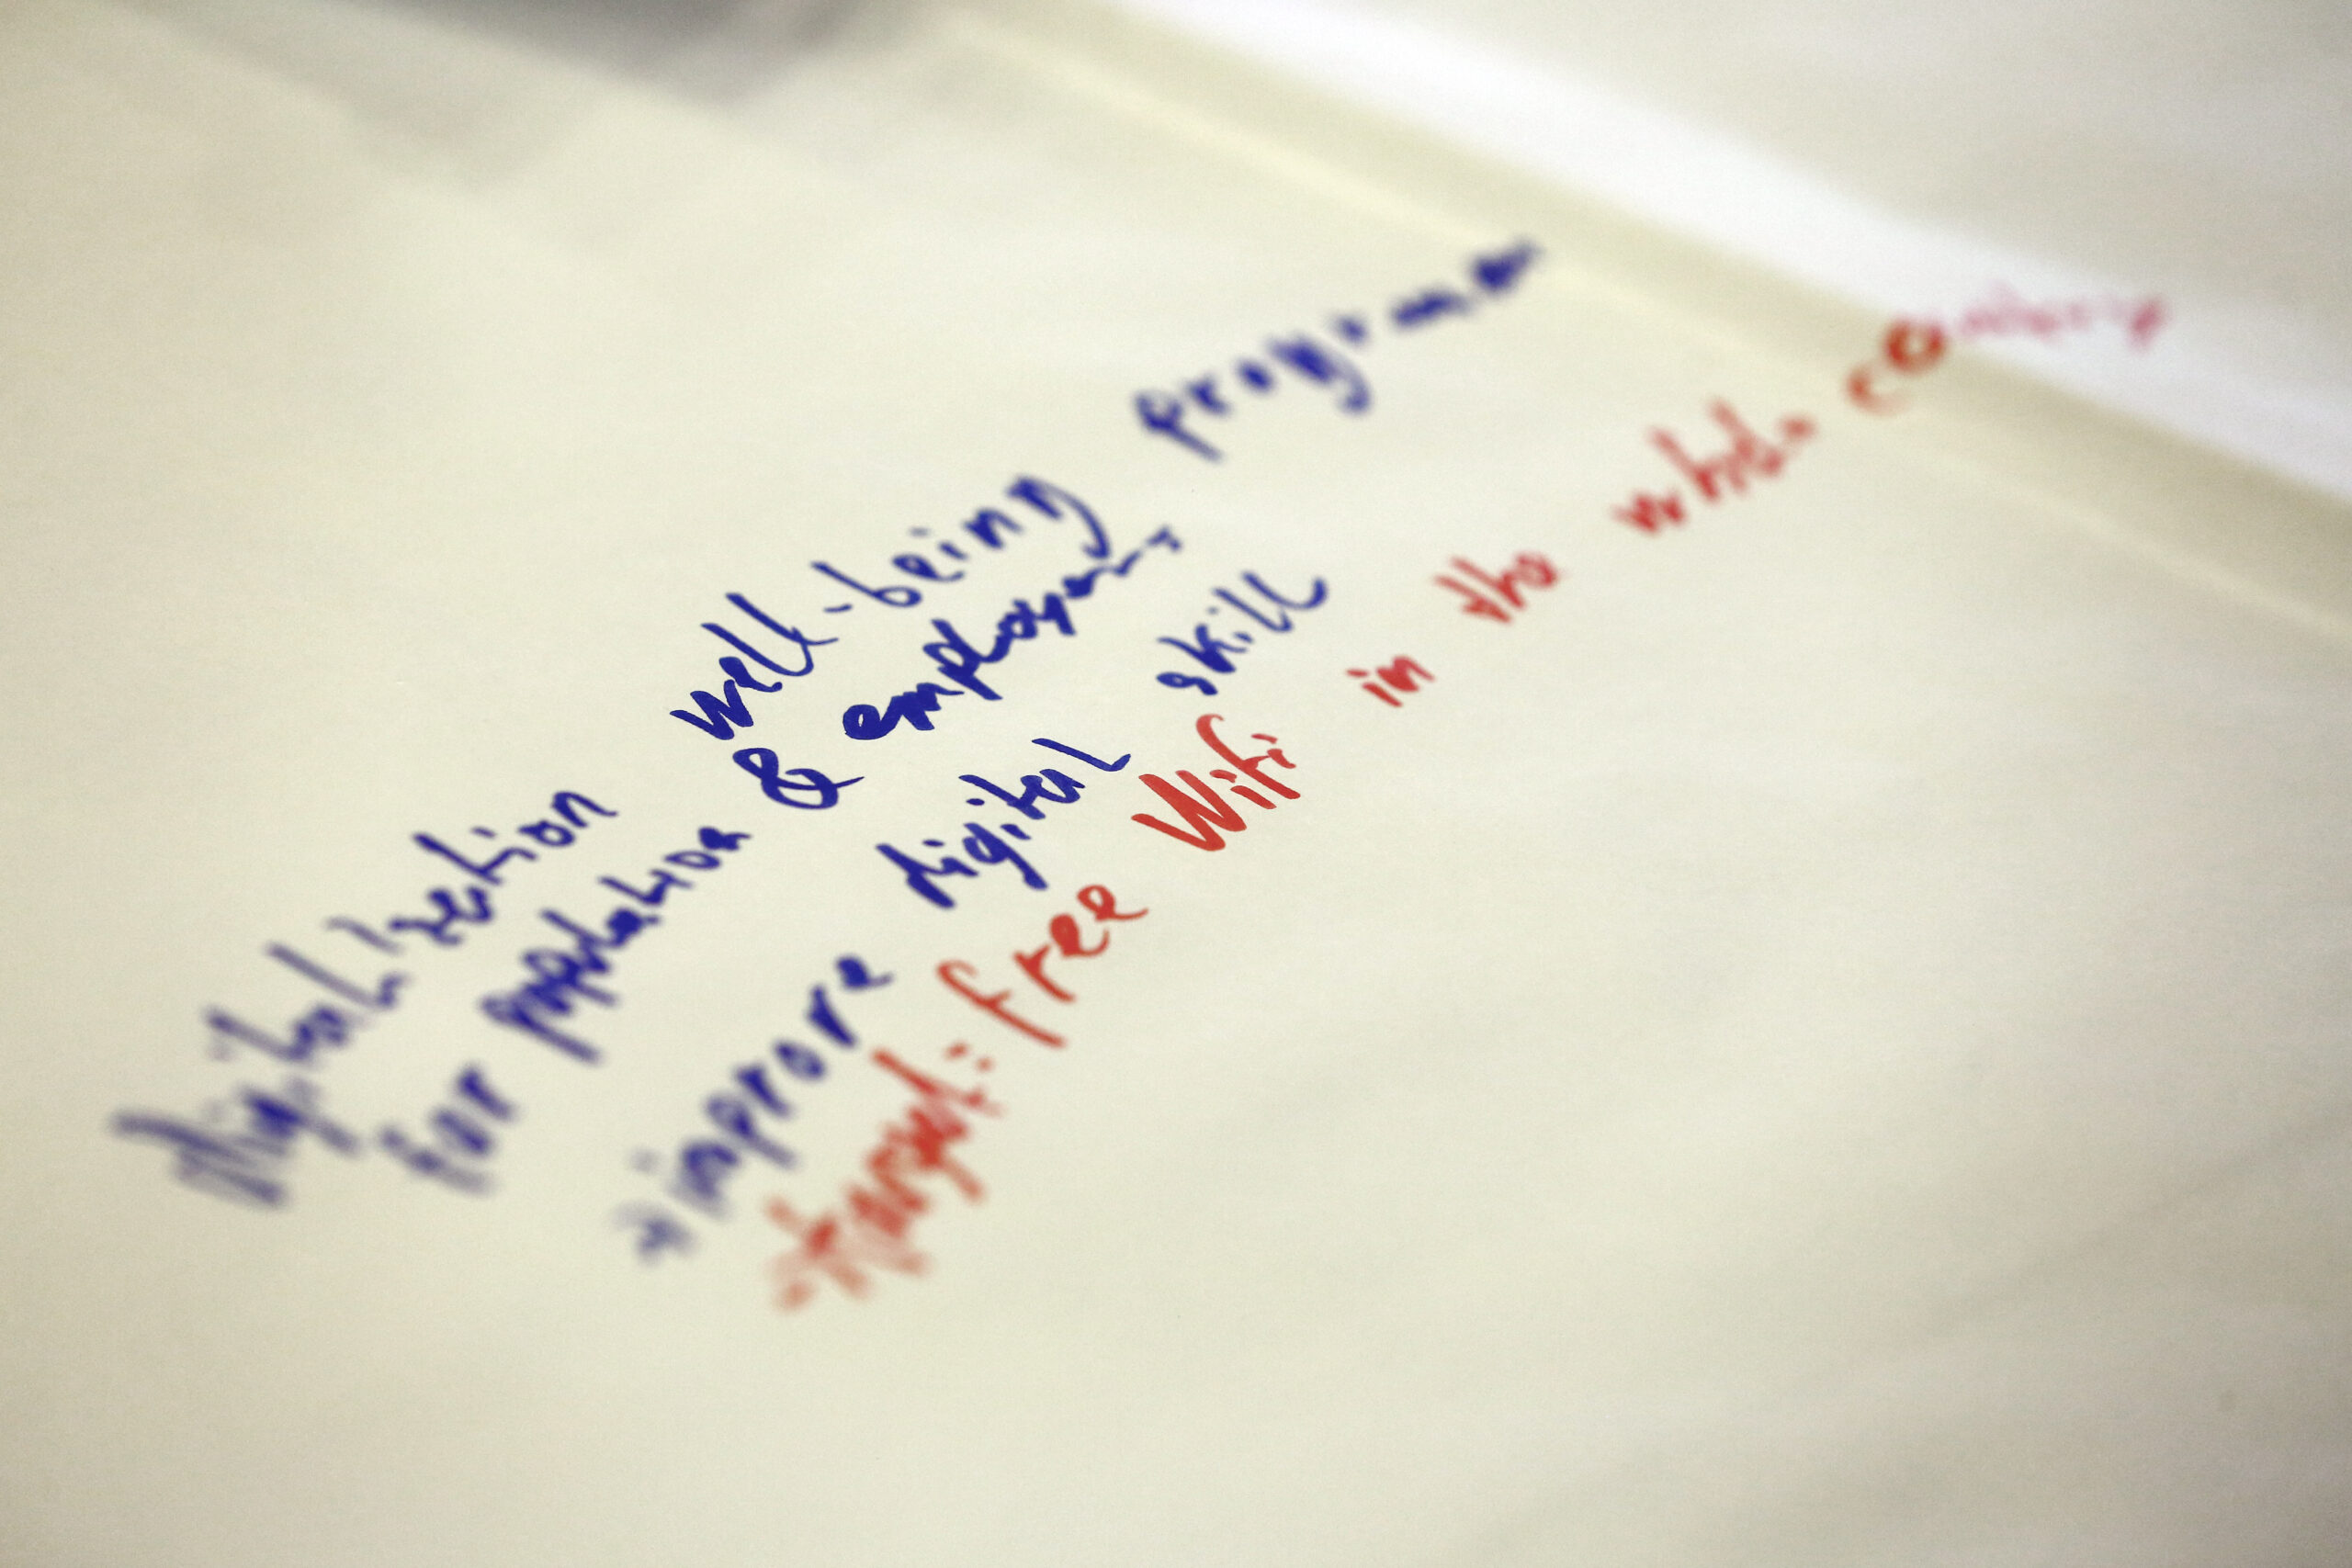 Digitalization well-being program
for population & employment
→ improve digital skill
→ target: free Wifi in the whole country